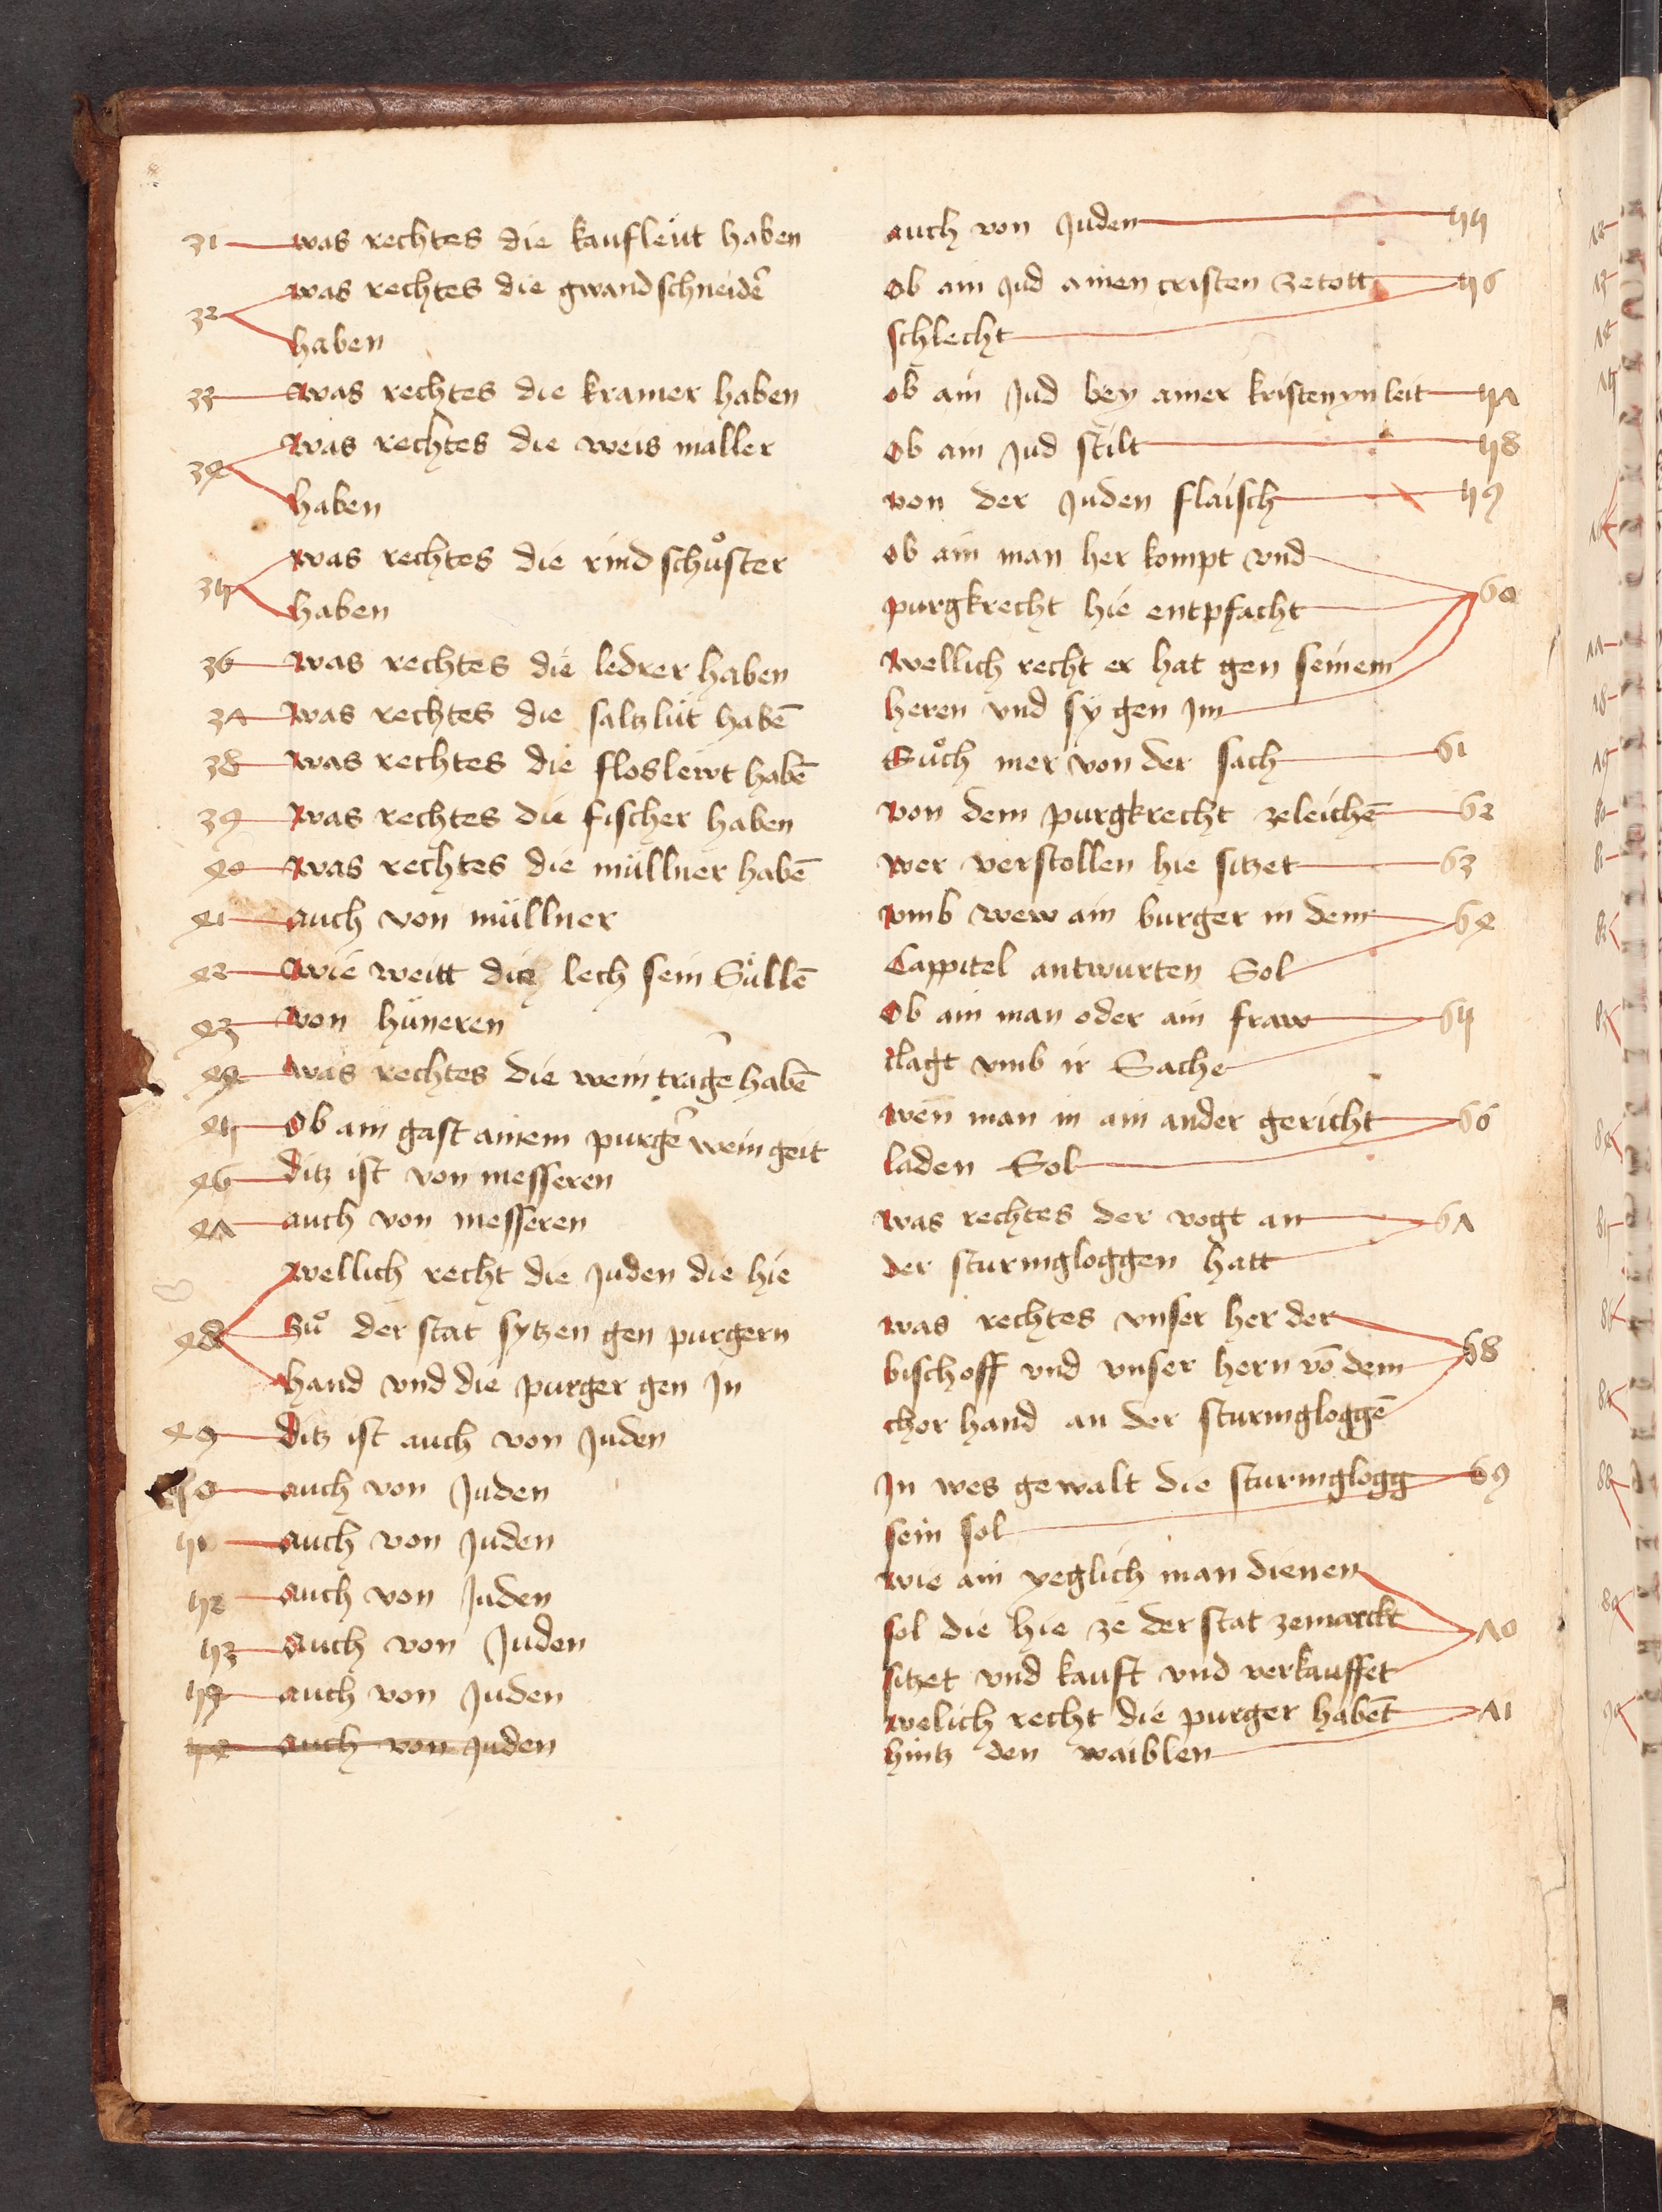 31 was rechtes die kaufleüt haben
was rechtes die gwandschneidẽ
32
haben
33 was rechtes die kramer haben
was rechtes die weis maller
34
haben
was rechtes die rindschuͦster
35
haben
36 was rechtes die ledrer haben
37 was rechtes die saltzlüt habẽ
38 was rechtes die flosleẅt habẽ
39 was rechtes die fischer haben
40 was rechtes die müllner habẽ
41 auch von müllner
42 wie weitt die lech sein Süllẽ
43 von hüneren
44 was rechtes die weintragẽ habẽ
45 Ob ain gast ainem purgẽ wein geit
46 ditz ist von messeren
47 auch von messeren
wellich recht die Juden die hie
48 zuͦ der stat sytzen gen purgern
hand vnd die purger gen In
49 ditz ist auch von Juden
50 auch von Juden
51 auch von Juden
52 auch von Juden
53 auch von Juden
54 auch von Juden
54 auch von Juden
auch von Juden 55
Ob ain Jud ainen cristen zetott 56
schlecht
ob ain Jud bey ainer kristenyn leit 57
Ob ain Jud stilt 58
von der Juden flaisch 59
ob ain man her kompt vnd
60
purgkrecht hie entpfacht
wellich recht er hat gen seinem
heren vnd sy gen Im
Suͦch mer von der sach 61
von dem purgkrecht zeleichẽ 62
wer verstollen hie sitzet 63
vmb wew ain burger in dem 64
Cappitel antwurten Sol
Ob ain man oder ain fraw 65
clagt vmb ir Sache
wen̄ man in ain ander gericht 66
laden Sol
was rechtes der vogt an 67
der sturmgloggen hatt
was rechtes vnser her der
68
bischoff vnd vnser hern võ dem
chor hand an der sturmgloggẽ
In wes gewalt die sturmglogg 69
sein sol
wie ain yeglich man dienen
sol die hie ze der stat zemarckt 70
sitzet vnd kauft vnd verkauffet
welich recht die purger habẽt 71
hintz den waiblen